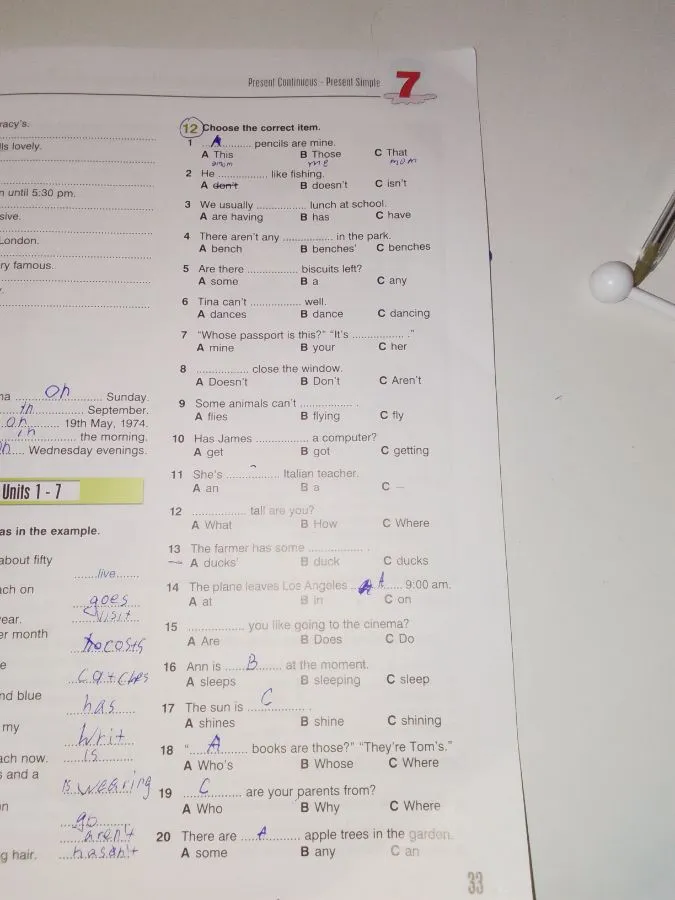 Present Continuous - Present Simple 7
racy's.
lls lovely.
n until 5:30 pm.
sive.
London.
ry famous.
na ...Oh... Sunday.
...in... September.
...on... 19th May, 1974.
...in... the morning.
...n... Wednesday evenings.
Units 1 - 7
as in the example.
about fifty
...live...
ach on
goes
year.
visit
er month
costs
e
catches
nd blue
has
my
writ
ach now.
is
s and a
is wearing
n
go
aren't
g hair.
hasan't
12 Choose the correct item.
1 ...A... pencils are mine.
A This B Those C That
2 He ............ like fishing.
A don't B doesn't C isn't
3 We usually ............ lunch at school.
A are having B has C have
4 There aren't any ............ in the park.
A bench B benches' C benches
5 Are there ............ biscuits left?
A some B a C any
6 Tina can't ............ well.
A dances B dance C dancing
7 "Whose passport is this?" "It's ............ ."
A mine B your C her
8 ............ close the window.
A Doesn't B Don't C Aren't
9 Some animals can't ............ .
A flies B flying C fly
10 Has James ............ a computer?
A get B got C getting
11 She's ............ Italian teacher.
A an B a C –
12 ............ tall are you?
A What B How C Where
13 The farmer has some ............ .
A ducks' B duck C ducks
14 The plane leaves Los Angeles ...A... 9:00 am.
A at B in C on
15 ............ you like going to the cinema?
A Are B Does C Do
16 Ann is ...B... at the moment.
A sleeps B sleeping C sleep
17 The sun is ...C... .
A shines B shine C shining
18 "...A... books are those?" "They're Tom's."
A Who's B Whose C Where
19 ...C... are your parents from?
A Who B Why C Where
20 There are ...A... apple trees in the garden.
A some B any C an
33